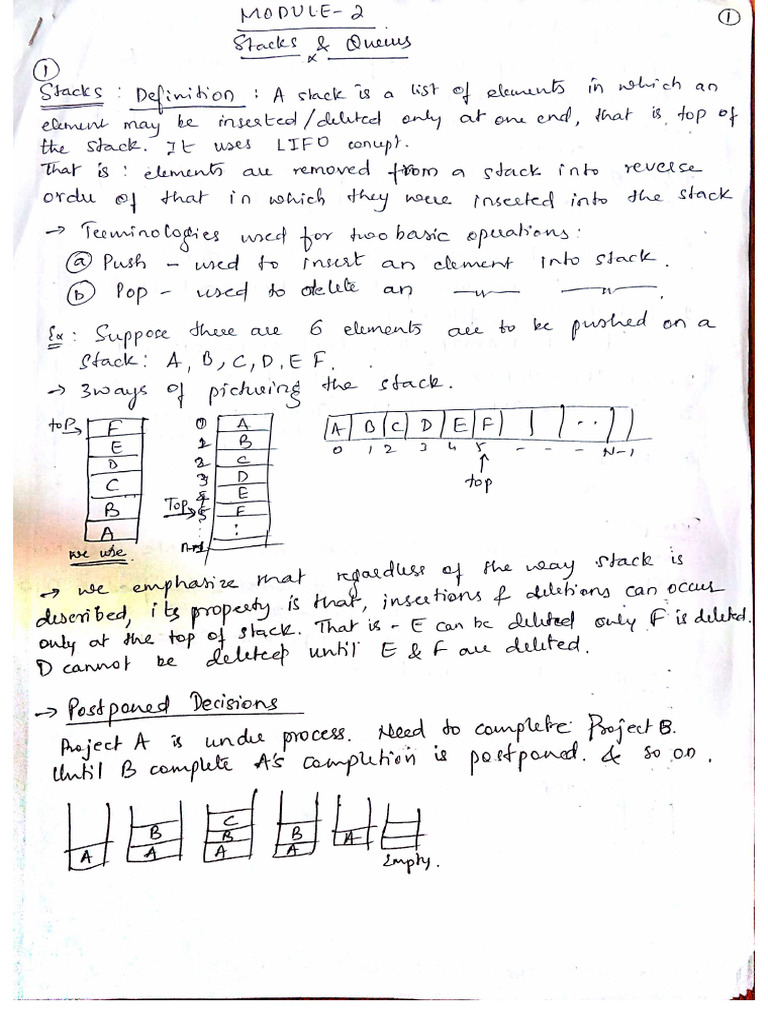 MODULE-2
①
Stacks & Queues
①
Stacks : Definition : A stack is a list of elements in which an
element may be inserted/deleted only at one end, that is top of
the stack. It uses LIFO conupt.
That is : elements are removed from a stack into reverse
order of that in which they were inserted into the stack
→ Teeminologies used for two basic operations :
ⓐ Push - used to insert an element into stack.
ⓑ Pop - used to delete an —"— —"—.
Ex : Suppose there are 6 elements are to be pushed on a
stack : A, B, C, D, E F.
→ 3ways of picturing the stack.
top→ F
E
D
C
B
A
we use.
0 A
1 B
2 C
3 D
4 E
Top→ 5 F
: :
n-1
A B C D E F | | .. |
0 1 2 3 4 5 - - - N-1
↑
top
→ we emphasize that regardless of the way stack is
described, its property is that, insections & deletions can occus
only at the top of stack. That is - E can be deleted only F is deleted.
D cannot be deleteep until E & F are deleted.
→ Postponed Decisions
Project A is under process. Need to complete Project B.
Until B complete A's completion is postponed. & so on.
A
B
A
C
B
A
B
A
A
Empty.